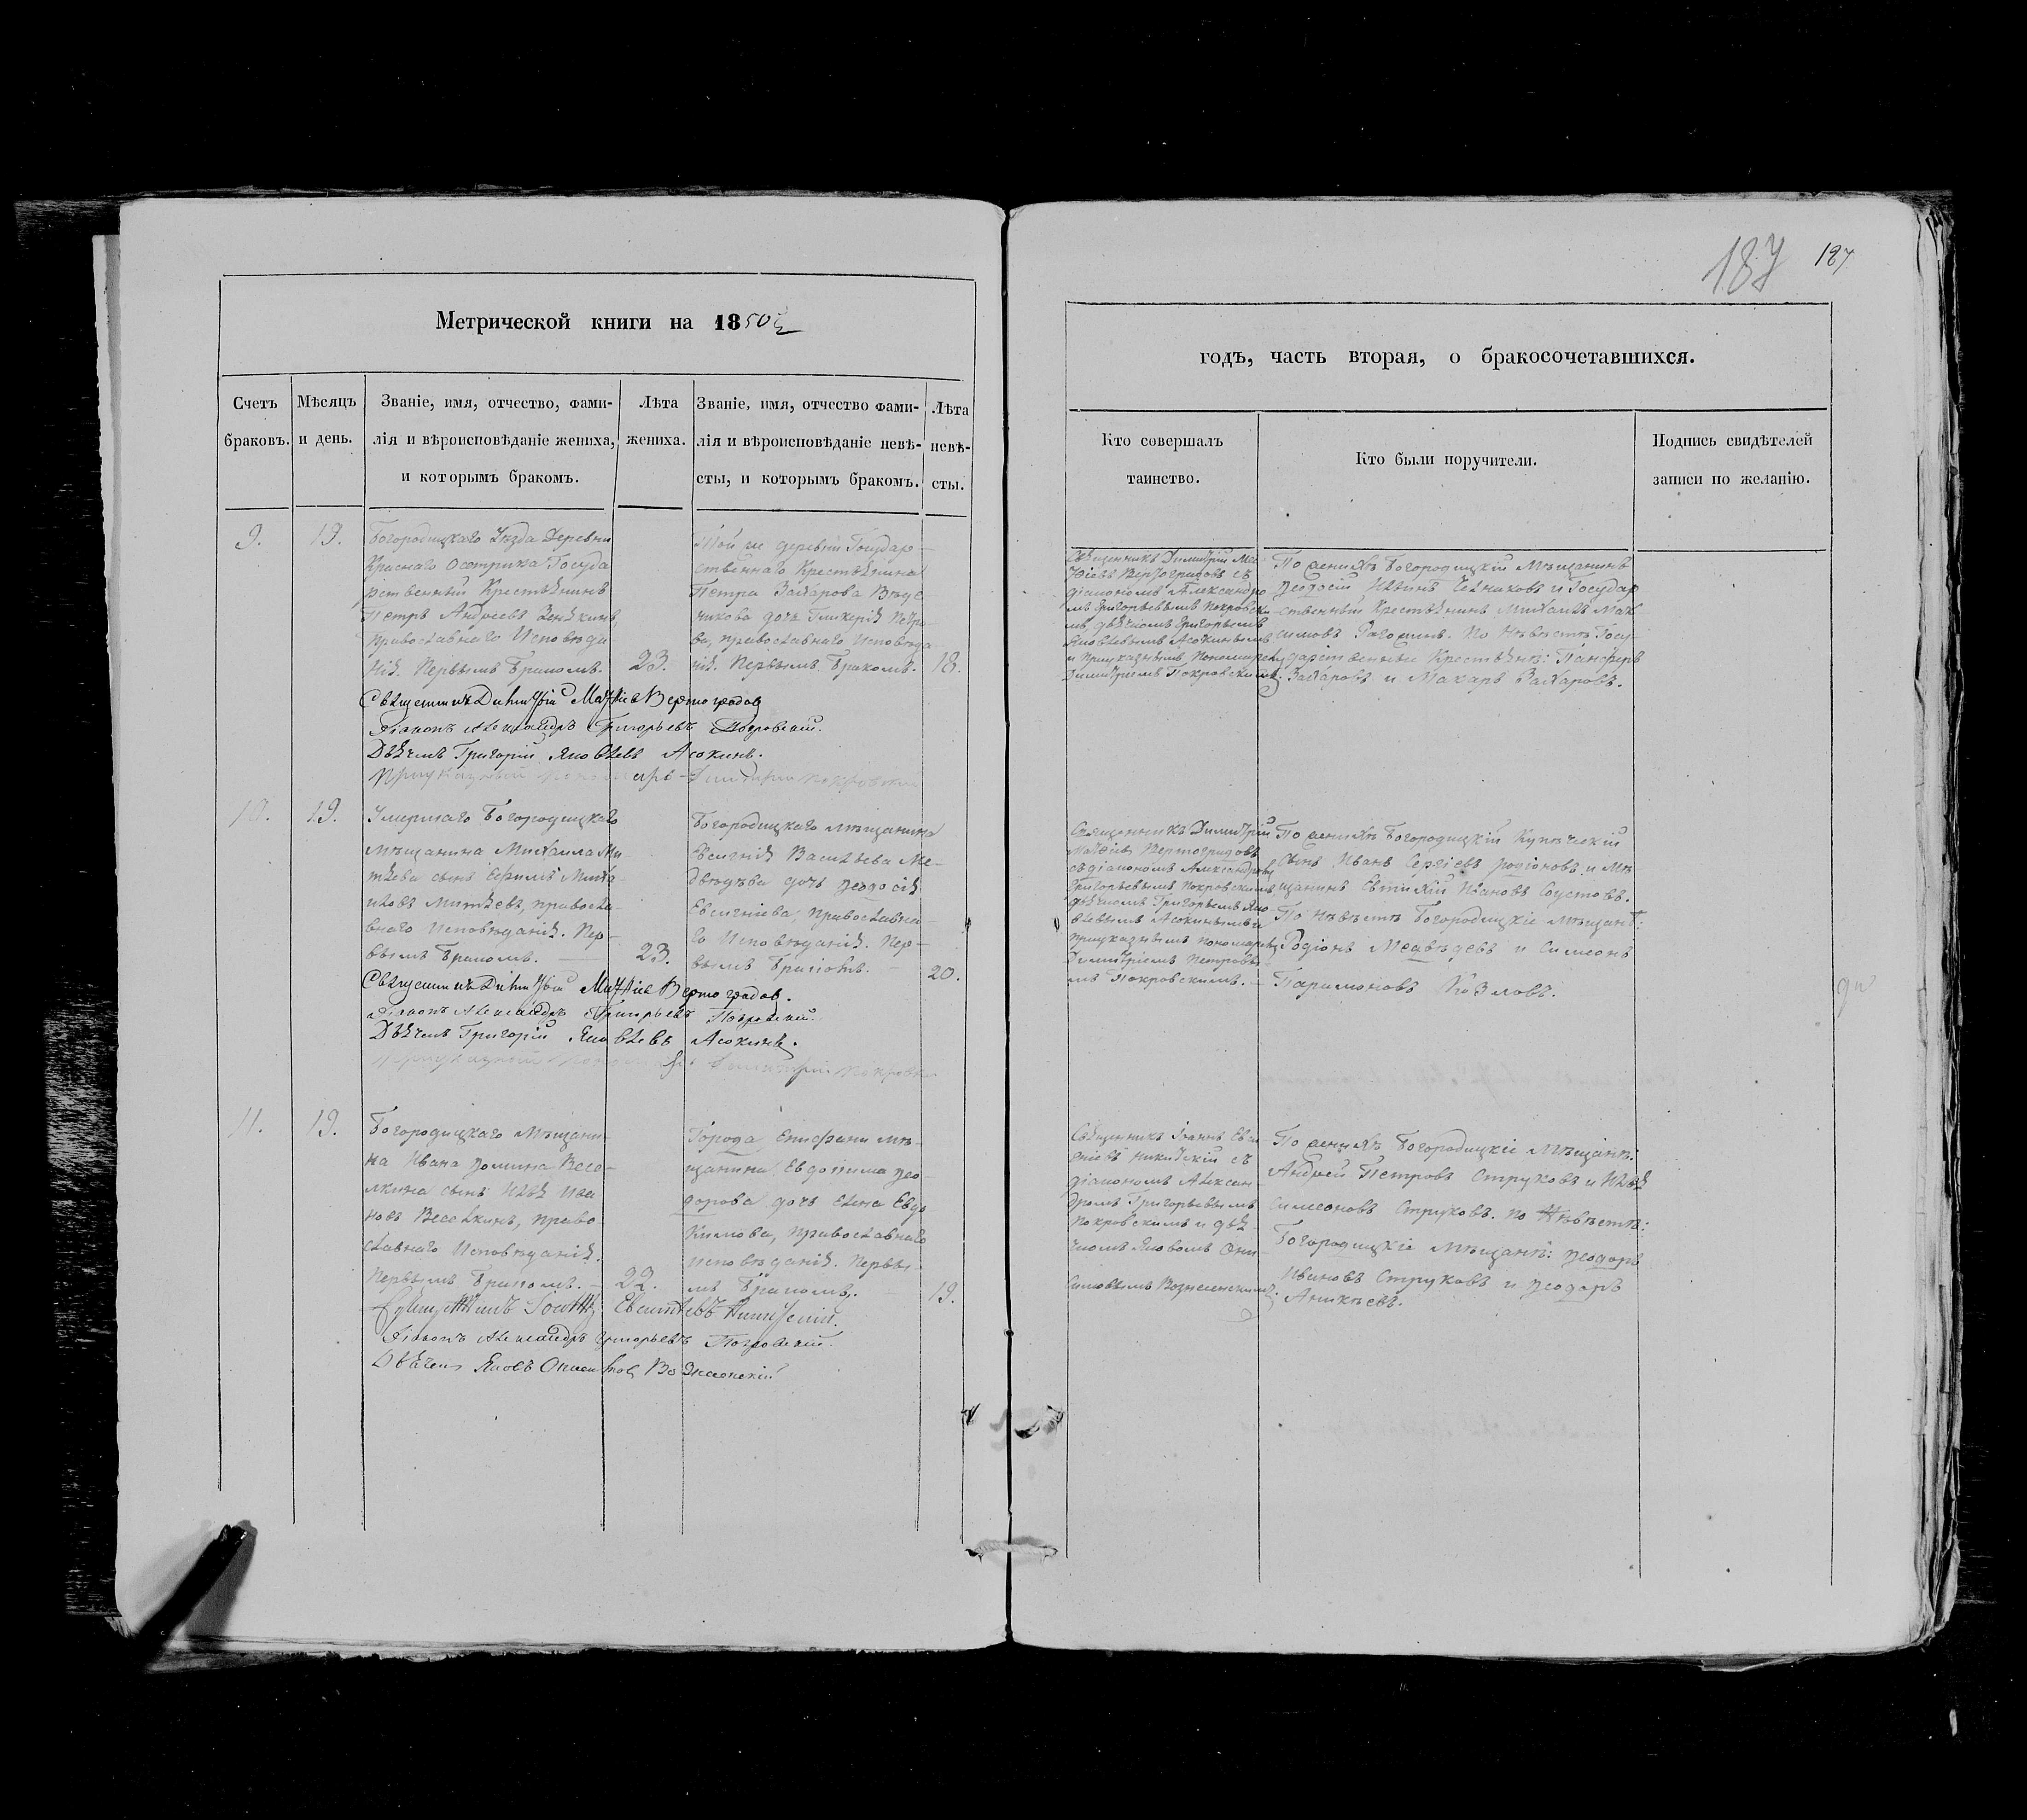 187 187
Метрической книги на 1850й
годъ, часть вторая, о бракосочетавшихся.
Счетъ браковъ.
Мѣсяцъ и день.
Званіе, имя, отчество, фами-
лія и вѣроисповѣданіе жениха,
и которымъ бракомъ.
Лѣта
жениха.
Званіе, имя, отчество фами-
лія и вѣроисповѣданіе невѣ-
сты, и которымъ бракомъ.
Лѣта
невѣ-
сты.
Кто совершалъ
таинство.
Кто были поручители.
Подпись свидѣтелей
записи по желанію.
9. 19.
Богородицкаго Уѣзда Деревни
Краснаго Осетрика Госуда
рственный Крестьянинъ
Петръ Андреевъ
Православнаго Исповѣда
нія. Первымъ Бракомъ. 23.
Той же деревни Государ-
ственнаго Крестьянина
Петра Захарова
дочь Гликерія Петро-
ва, православнаго Исповѣда
нія. Первымъ Бракомъ. 18.
Священникъ Димитрій Мат-
ѳіевъ Вертоградовъ съ
діакономъ Александро
мъ Григорьевымъ Покровски
мъ, дьячкомъ Григорьемъ
Яковлевымъ Асокинымъ
и Приуказнымъ Пономаремъ
Димитріемъ Покровскимъ.
По женихѣ Богородицкій Мѣщанинъ
Ѳеодосій и Государ
ственный Крестьянинъ Михаилъ Мак
симовъ Рагозинъ. По Невѣстѣ Госу-
дарственные Крестьяне: Панферъ
Захаровъ и Макаръ Захаровъ.
Священникъ Димитрій Матѳіевъ Вертоградов
Діаконъ Александръ Григорьевъ Покровский.
Дьячекъ Григорій Яковлевъ Асокинъ.
Приуказный Пономарь Димитрій Покровский
10. 19.
Умершаго Богородицкаго
мѣщанина Михаила Ми
тяева сынъ Ефимъ Миха
иловъ Митяевъ, православ-
внаго Исповѣданія. Пер-
вымъ Бракомъ. 23.
Богородицкаго мѣщанина
Евсигнія Васильева Ме-
двѣдева дочь Ѳеодосія
Евсигніева, Православна-
го Исповѣданія. Пер-
вымъ Бракомъ. 20.
Священникъ Димитрій
Матѳіевъ Вертоградовъ
съ діакономъ Александромъ
Григорьевымъ Покровскимъ
дьячкомъ Григорьемъ Яко-
влевымъ Асокинымъ и
приуказнымъ пономаремъ
Димитріемъ Петровы-
мъ Покровскимъ.
По женихѣ Богородицкій Купеческій
сынъ Иванъ Сергіевъ Родіоновъ и Мѣ
щанинъ Евтихій Ивановъ Сустовъ.
По Невѣстѣ Богородицкіе мѣщане:
Родіонъ Медвѣдевъ и Симеонъ
Парамоновъ Козловъ.
Священникъ Димитрій Матѳіевъ Вертоградов.
Діаконъ Александръ Григорьевъ Покровский.
Дьячекъ Григорій Яковлевъ Асокинъ.
Приуказный Пономарь Димитрій Покровский
11. 19.
Богородицкаго Мѣщани-
на Ивана Ѳомина Весе-
лкина сынъ Илья Ива
новъ Веселкинъ, право-
славнаго Исповѣданія.
Первымъ Бракомъ. 22.
Города Епифани мѣ-
щанина Евдокима Ѳео-
дорова дочь Елена Евдо
кимова, православнаго
исповѣданія. Первы-
мъ Бракомъ. 19.
Священникъ Іоаннъ Евси
гніевъ Никитскій съ
діакономъ Алексан-
дромъ Григорьевымъ
Покровскимъ и дья
чкомъ Яковомъ Они
симовымъ Вознесенскимъ.
По женихѣ Богородицкіе Мѣщане:
Андрей Петровъ Струковъ и Илья
Симеоновъ Струковъ. по Невѣстѣ:
Богородицкіе мѣщане: Ѳеодоръ
Ивановъ Струковъ и Ѳеодоръ
Аникѣевъ.
Священникъ Іоаннъ Евсигніевъ Никитскій.
Діаконъ Александръ Григорьевъ Покровский.
Дьячекъ Яковъ Онисимов Вознесенскій